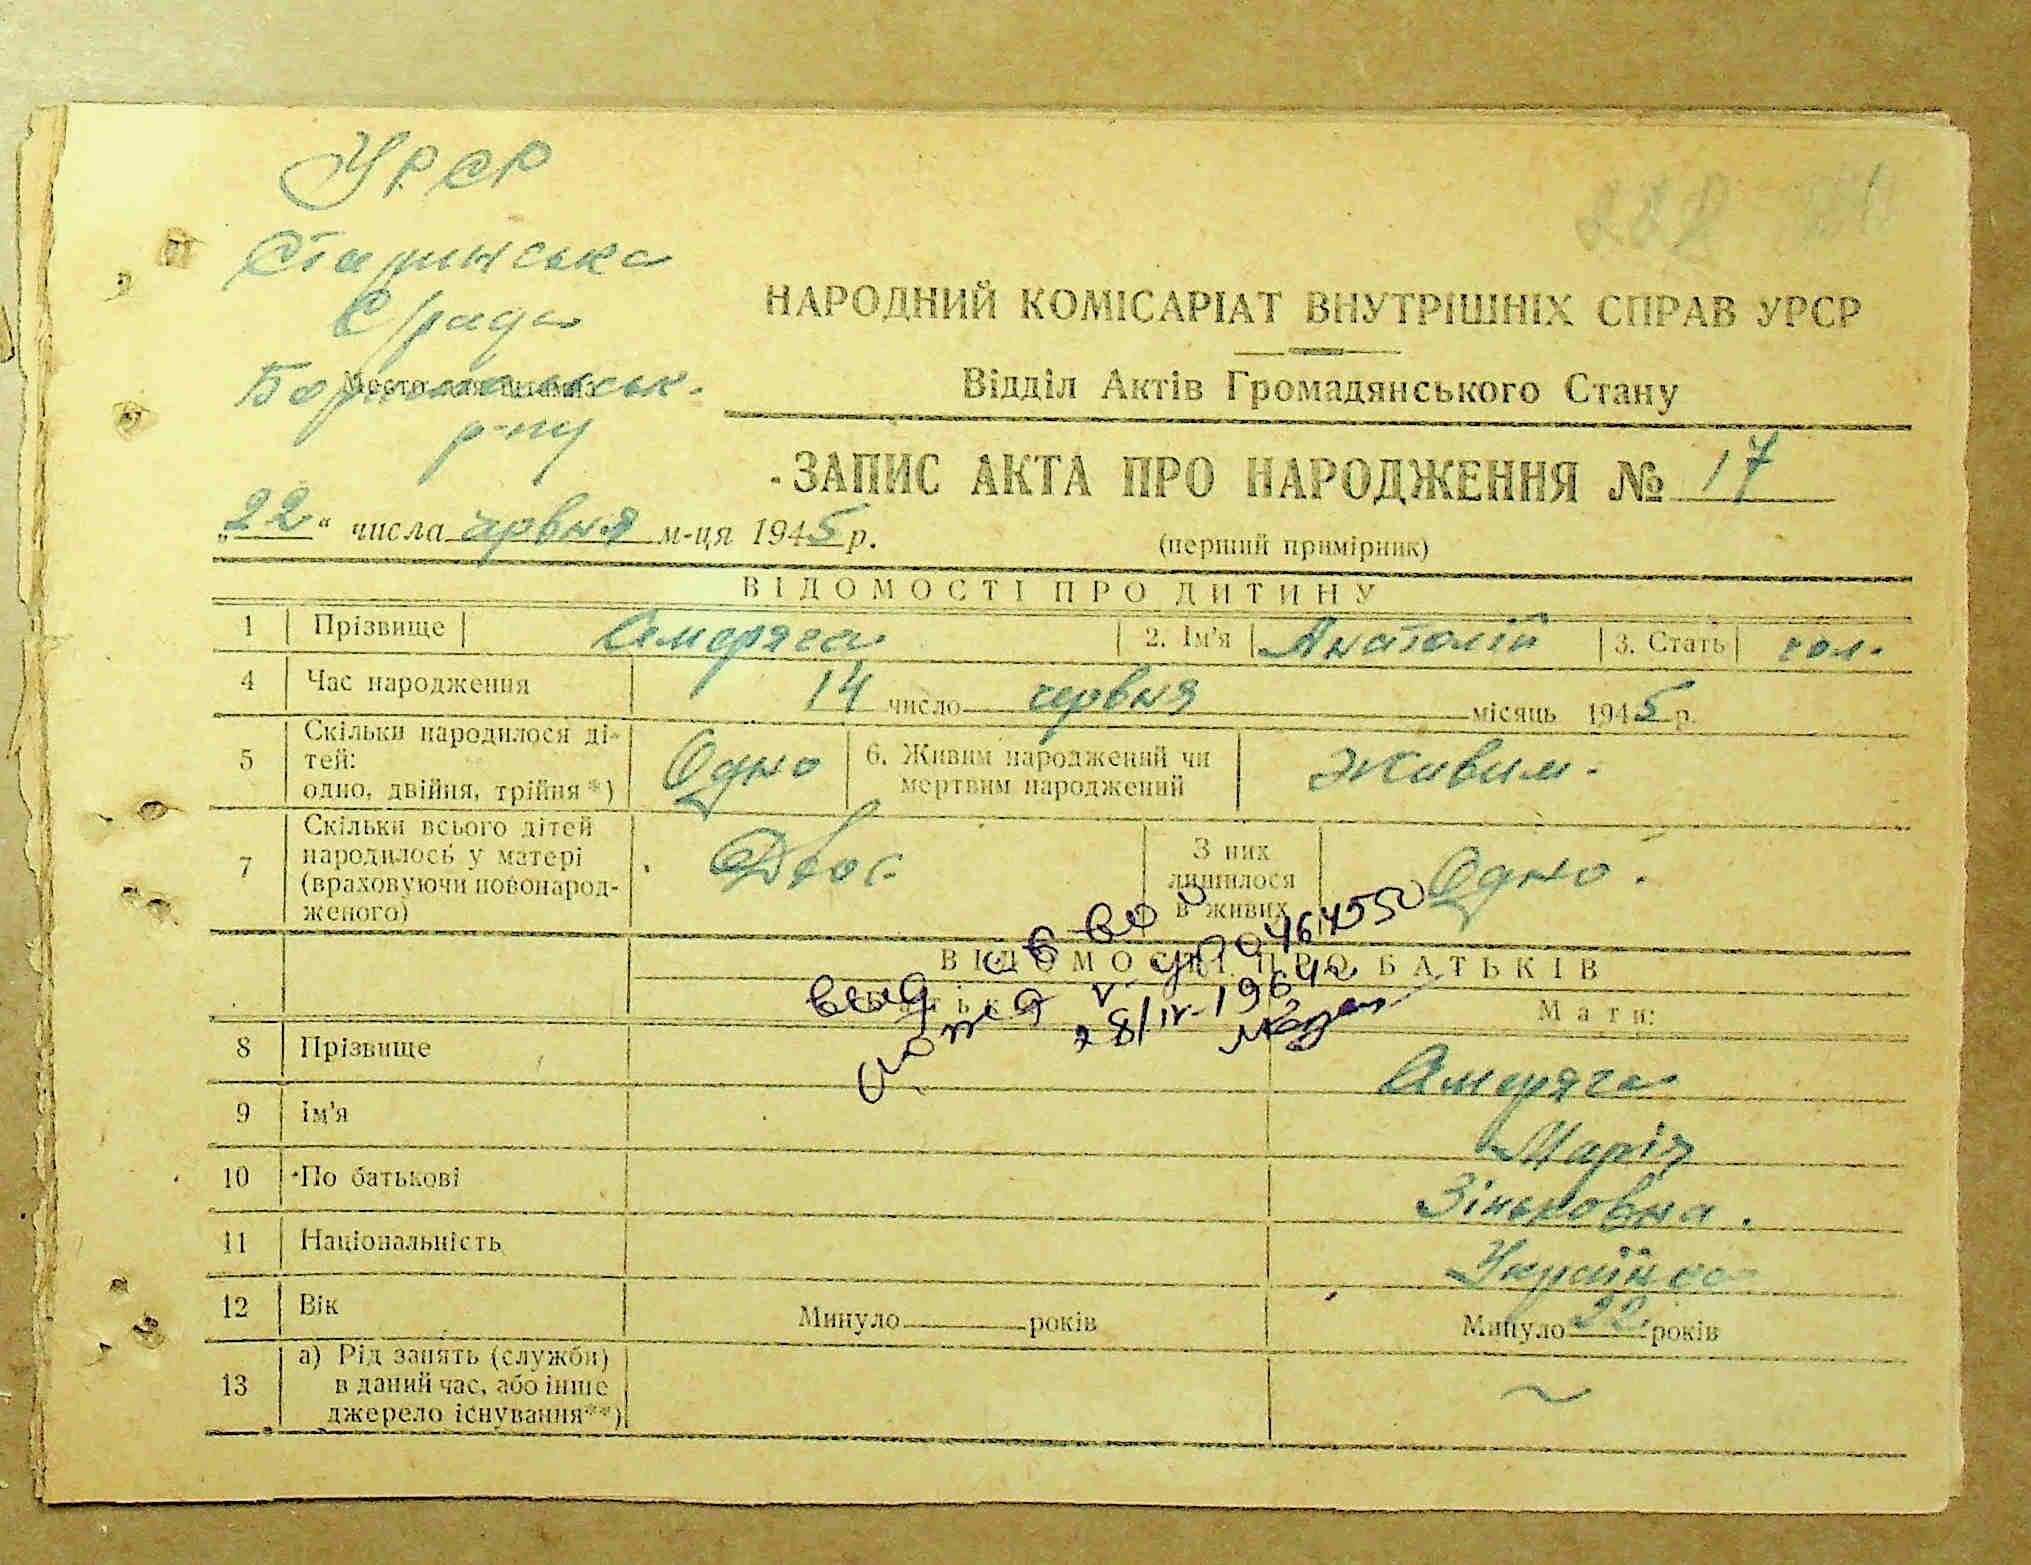 УРСР
Старинська
С/рада
Бориспільськ.
р-ну
НАРОДНИЙ КОМІСАРІАТ ВНУТРІШНІХ СПРАВ УРСР
Відділ Актів Громадянського Стану
ЗАПИС АКТА ПРО НАРОДЖЕННЯ № 17
„22“ числа червня м-ця 1945 р.
(перший примірник)
ВІДОМОСТІ ПРО ДИТИНУ
1 Прізвище Смеряга 2. Ім'я Анатолій 3. Стать чол.
4 Час народження 14 число червня місяць 1945 р.
5 Скільки народилося ді-
тей:
одно, двійня, трійня*) Одно
6. Живим народжений чи
мертвим народжений Живим.
7 Скільки всього дітей
народилось у матері
(враховуючи новонарод-
женого) Двоє.
З них
лишилося
в живих Одно.
ВІДОМОСТІ ПРО БАТЬКІВ
Батько
Мати:
28/IV-1964
8 Прізвище Смеряга
9 Ім'я Марія
10 По батькові Зіньковна.
11 Національність Українка
12 Вік Минуло років Минуло 22 років
13 а) Рід занять (служби)
в даний час, або інше
джерело існування**)